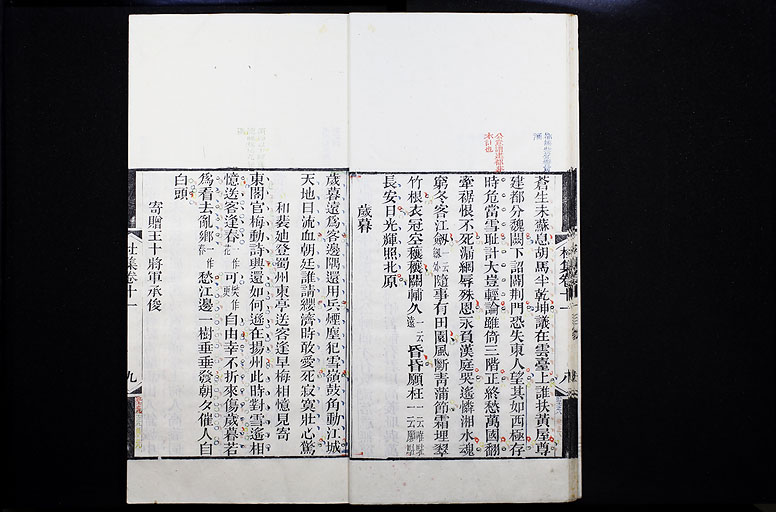 蒼生未蘇息胡馬半乾坤議在雲臺上誰扶黃屋尊
建都分魏闕下詔闢荆門恐失東人望其如西極存
時危當雪恥計大豈輕論雖倚三階正終愁萬國翻
牽裾恨不死漏網辱殊恩永負漢庭哭遙憐湘水魂
窮冬客江劍隨事有田園風斷青蒲節霜埋翠
竹根衣冠空穰穰關輔久昏昏願枉
長安日光輝照北原
歲暮
歲暮遠爲客邊隅還用兵煙塵犯雪嶺鼓角動江城
天地日流血朝廷誰請纓濟時敢愛死寂寞壯心驚
和裴迪登蜀州東亭送客逢早梅相憶見寄
東閣官梅動詩興還如何遜在揚州此時對雪遙相
憶送客逢春可自由幸不折來傷歲暮若
爲看去亂鄉愁江邊一樹垂垂發朝夕催人自
白頭
寄贈王十將軍承俊
杜集卷十一
九